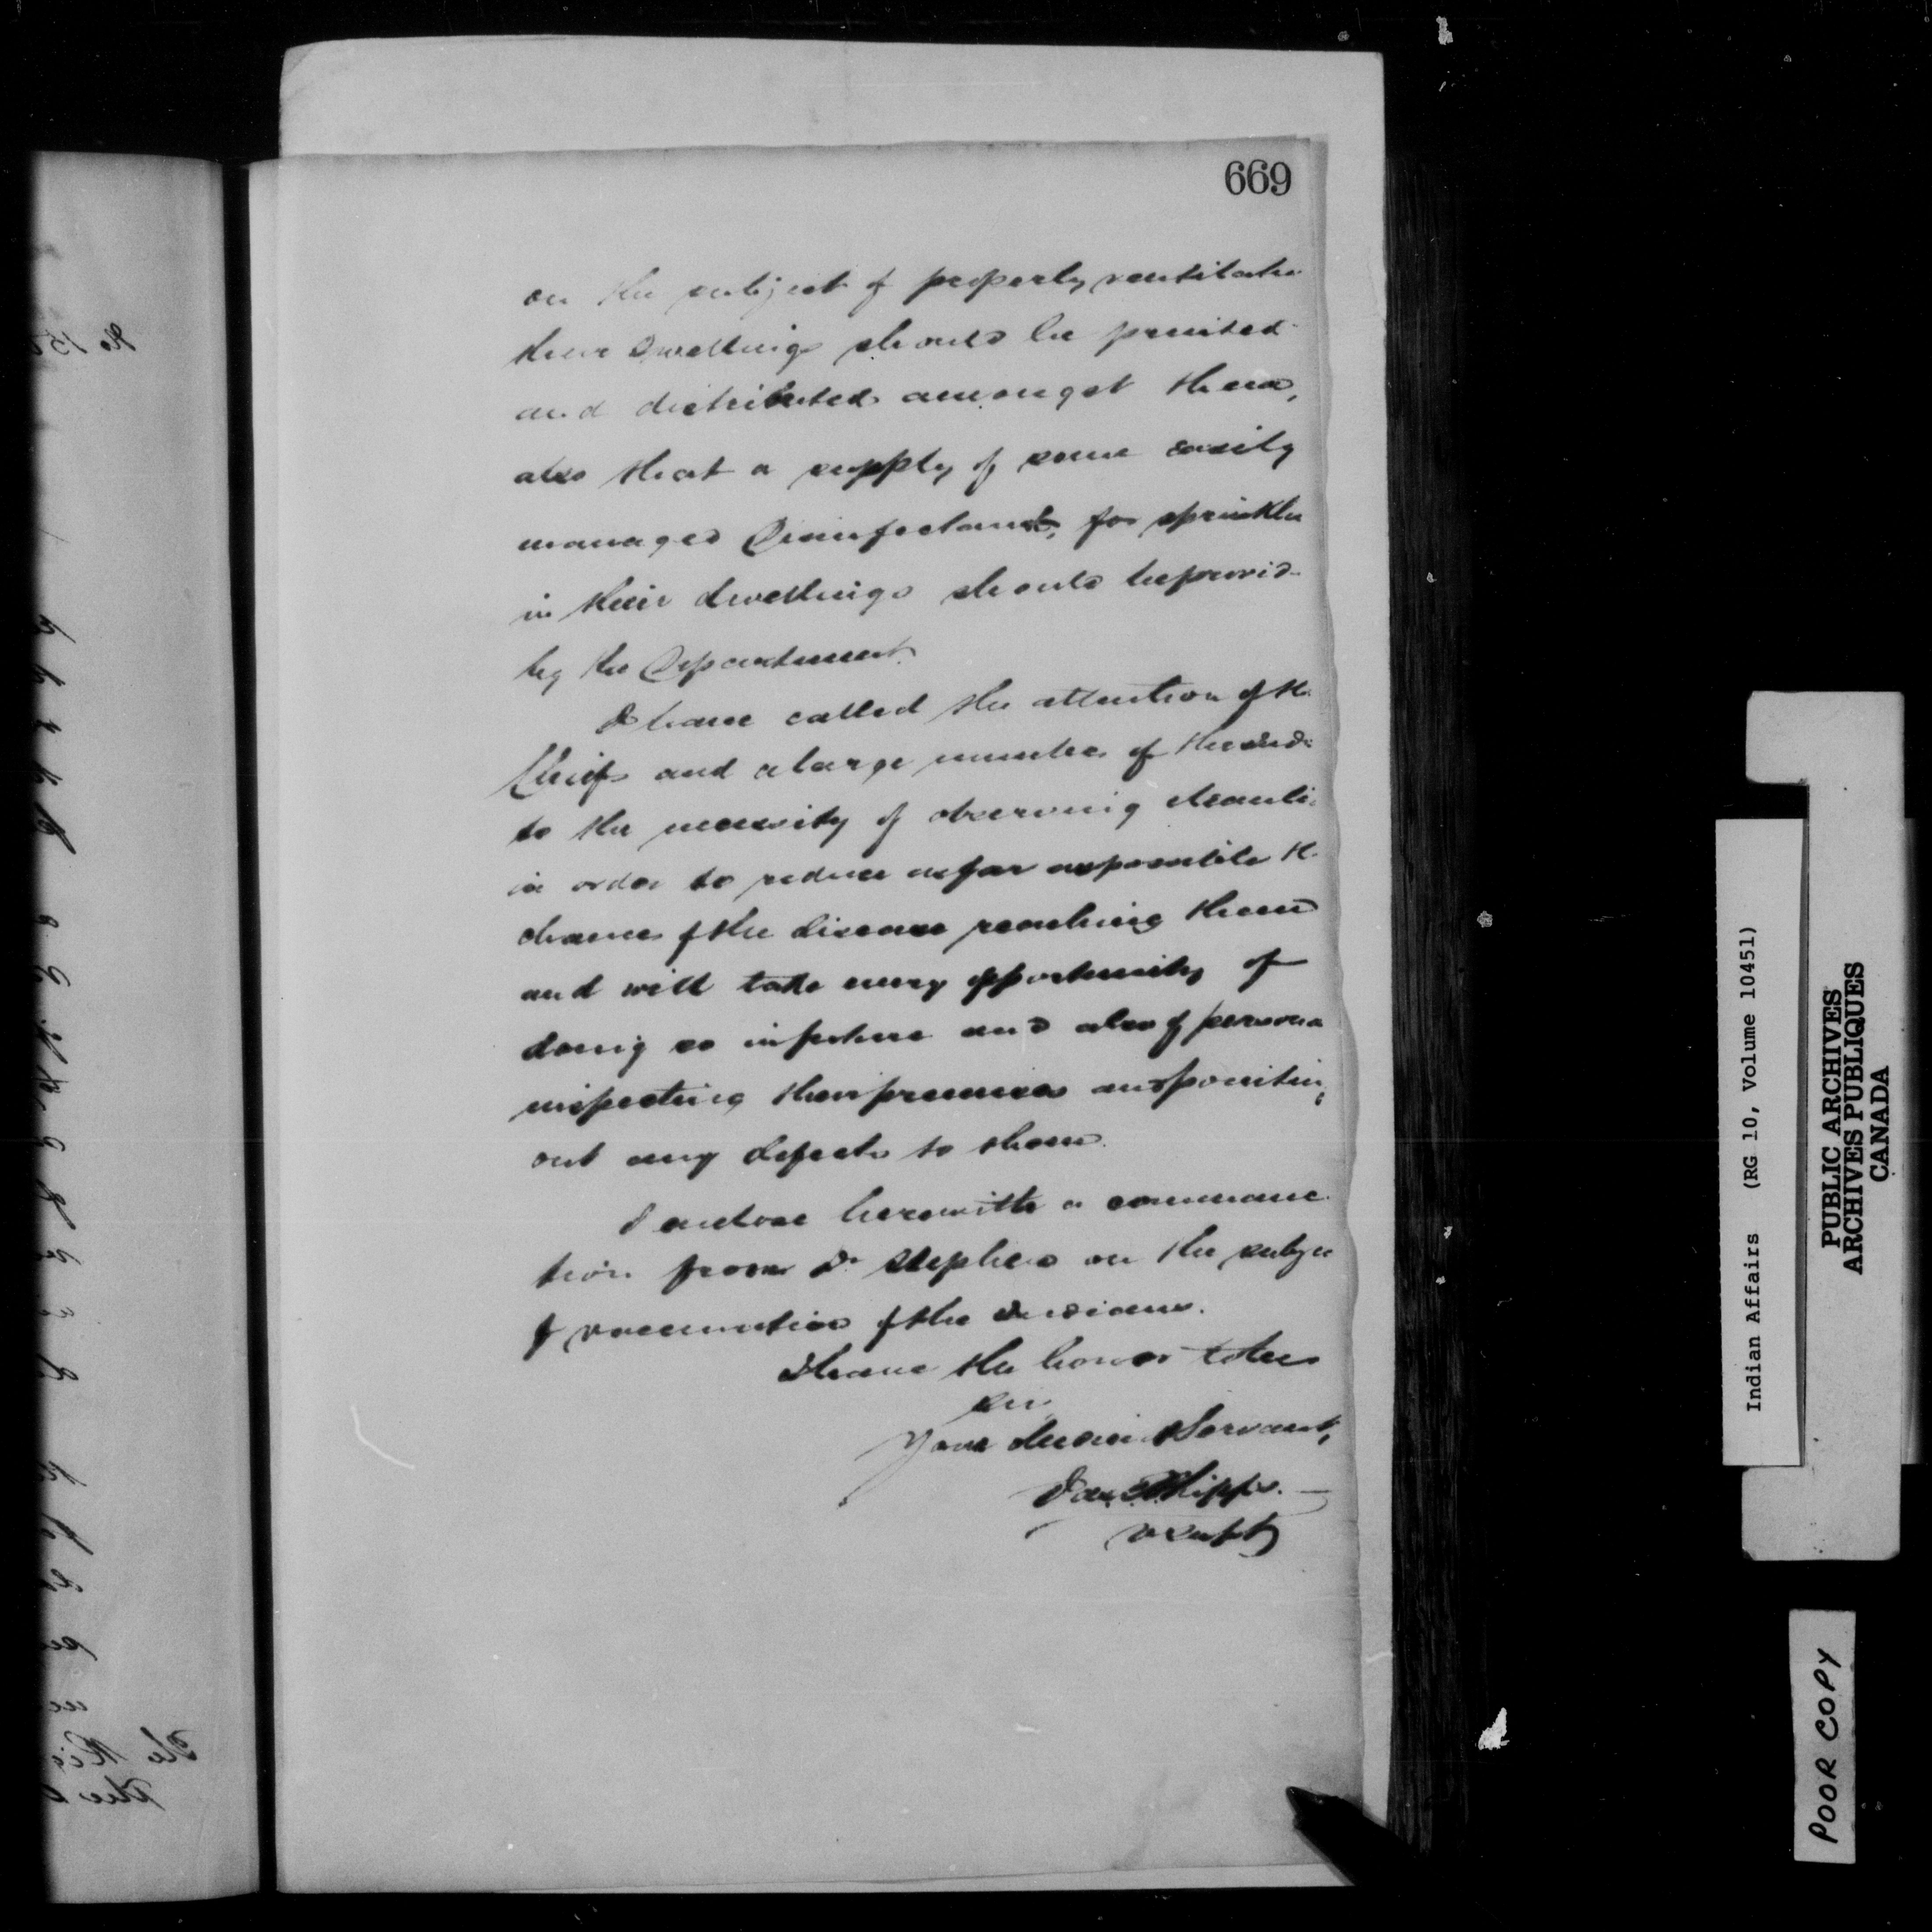 669
on the subject of properly ventilatin
their Dwellings should be printed
and distributed amongst them,
also that a supply of some easily
managed Disinfectant, for sprinklin
in their dwellings should be provid
by the Department.
I have called the attention of th
Chiefs and a large number of the Indi
to the necessity of observing cleanli
in order to reduce as far as possible th
chances of the disease reaching them
and will take every opportunity of
doing so in future and also of persona
inspecting their premises and pointin
out any defects to them.
I enclose herewith a communic
tion from Dr Stephen on the subjec
of vaccination of the Indians.
I have the honor to be
Sir
Your Servant,
Jas. C. Phipps.
V. Supt
Indian Affairs (RG 10, Volume 10451)
PUBLIC ARCHIVES
ARCHIVES PUBLIQUES
CANADA
POOR COPY